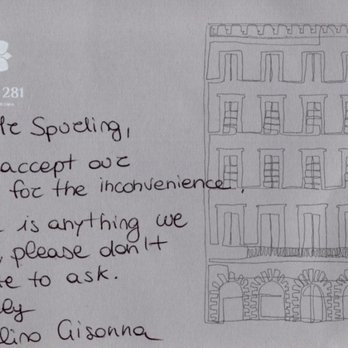 281
Spurling,
accept our
for the inconvenience.
is anything we
, please don't
to ask.
Gisonna